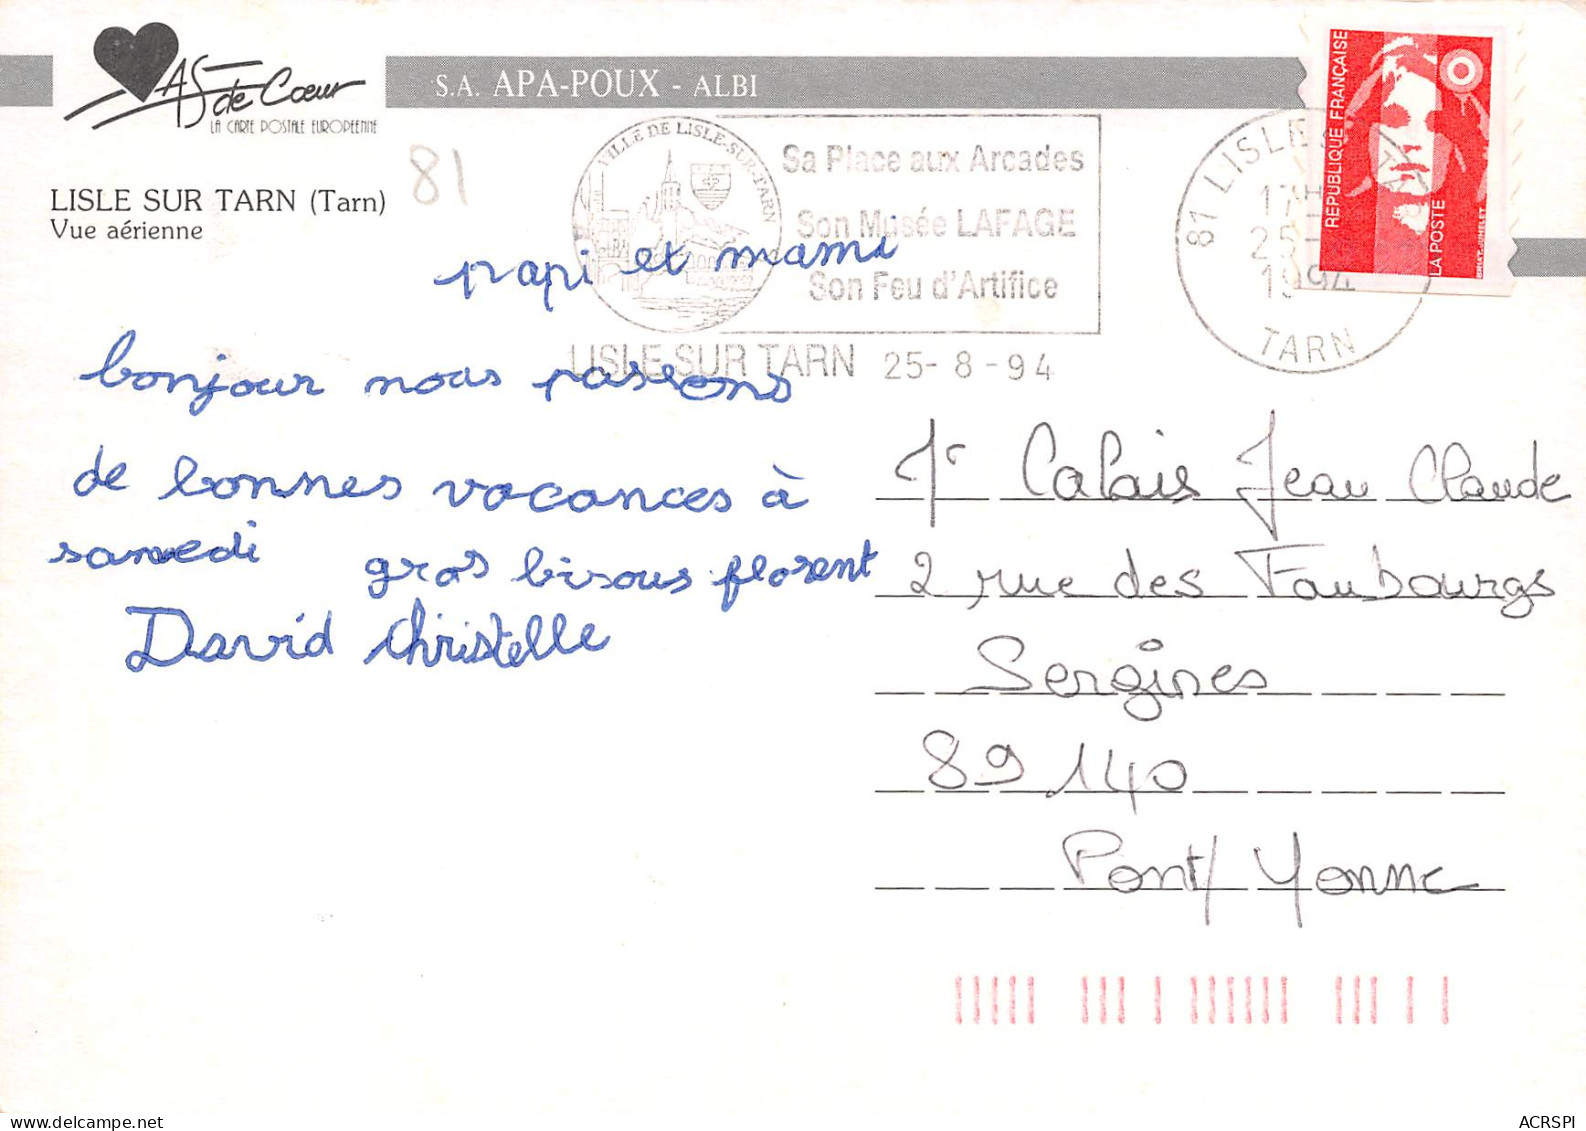 As de Cœur
LA CARTE POSTALE EUROPEENNE
S.A. APA-POUX - ALBI
81
LISLE SUR TARN (Tarn)
Vue aérienne
VILLE DE LISLE-SUR-TARN
Sa Place aux Arcades
Son Musée LAFAGE
Son Feu d'Artifice
LISLE SUR TARN 25-8-94
81 LISLE S/ TARN
17H
25-
1994
TARN
RÉPUBLIQUE FRANÇAISE
LA POSTE
BRIAT-JUMELET
papi et mami
bonjour nous passons
de bonnes vacances à
samedi gros bisous florent
David Christelle
Mr Calais Jean Claude
2 rue des Faubourgs
Sergines
89140
Pont/Yonne
ACRSPI